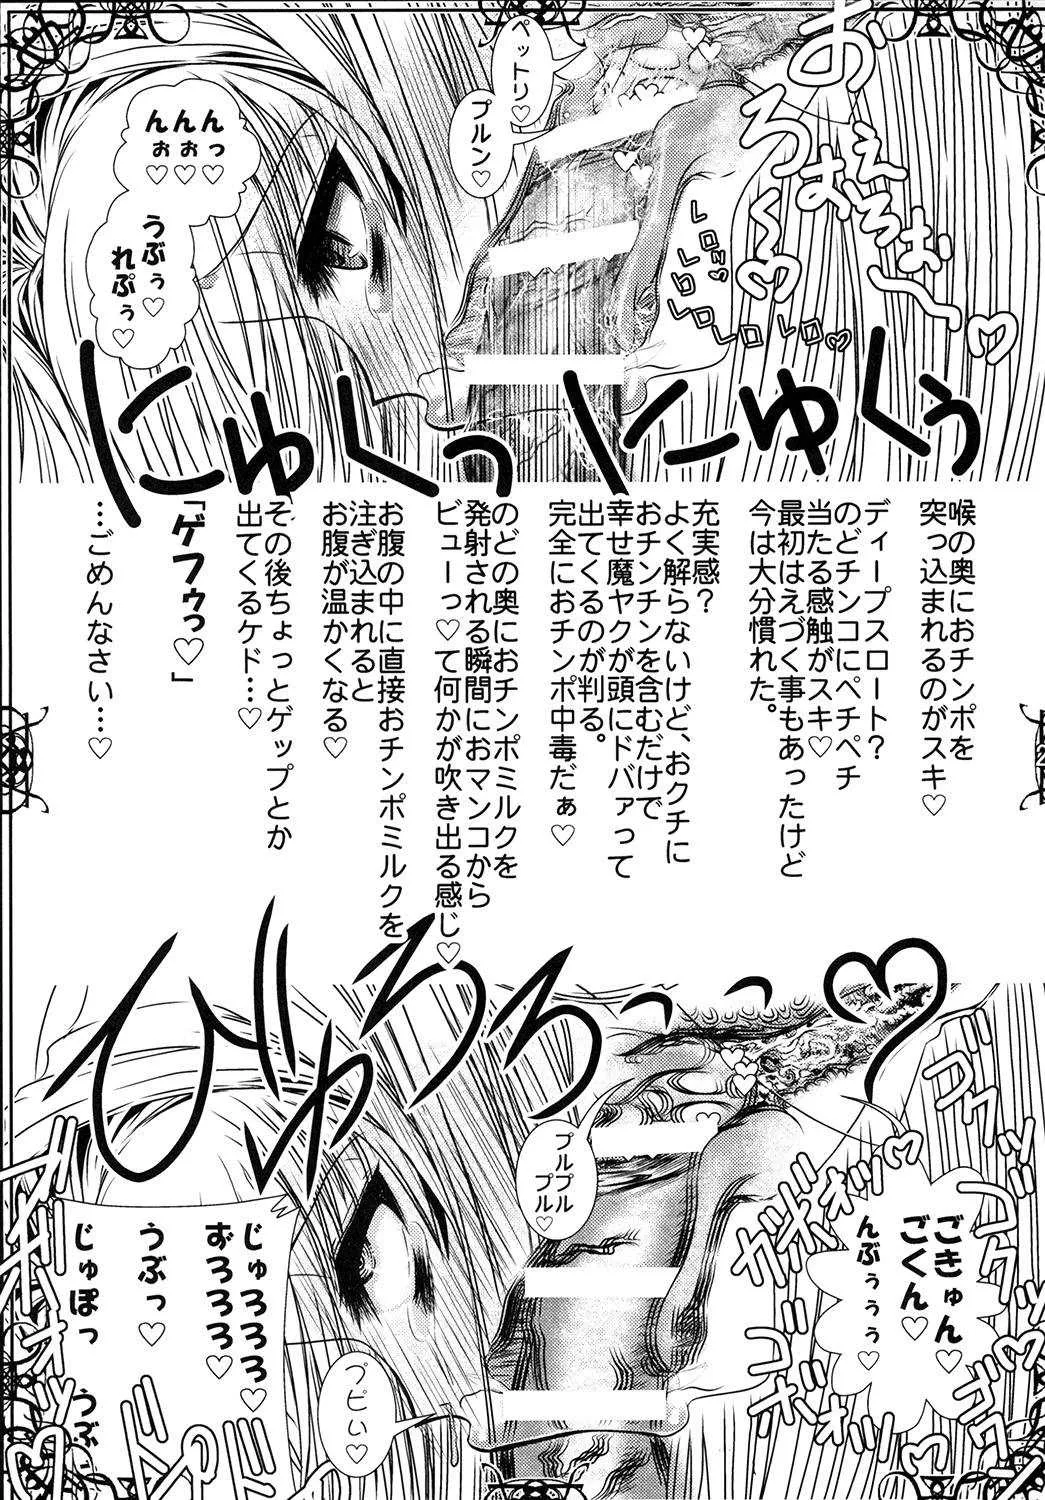 おぇえぇろぉお~♡
ろぉおぉ
く~♡
レロッ♡
レロレロレロレロ♡
ペットリ♡
プルン♡
んっ♡
んぉ♡
んぉ♡
うぶぅ♡
れぷぅ♡
にゅくっにゅくぅ
喉の奥におチンポを
突っ込まれるのがスキ♡
ディープスロート?
のどチンコにペチペチ
当たる感触がスキ♡
最初はえづく事もあったけど
今は大分慣れた。
充実感?
よく解らないけど、おクチに
おチンチンを含むだけで
幸せ魔ヤクが頭にドバァって
出てくるのが判る。
完全におチンポ中毒だぁ♡
のどの奥におチンポミルクを
発射される瞬間におマンコから
ビューーっ♡て何かが吹き出る感じ♡
お腹の中に直接おチンポミルクを
注ぎ込まれると
お腹が温かくなる♡
その後ちょっとゲップとか
出てくるケド…♡
「ゲフゥっ♡」
…ごめんなさい…♡
びゅろろっっ♡
ゴクッ
ゴクッ
ごきゅん♡
ごくん♡
んぶぅぅぅ♡
ガボボオッ♡
ガボゴボオッ
プルプルプル♡
プピぃ♡
じゅろろろろ♡
ずろろろろ♡
うぶっ♡
じゅぽっ
うぶ